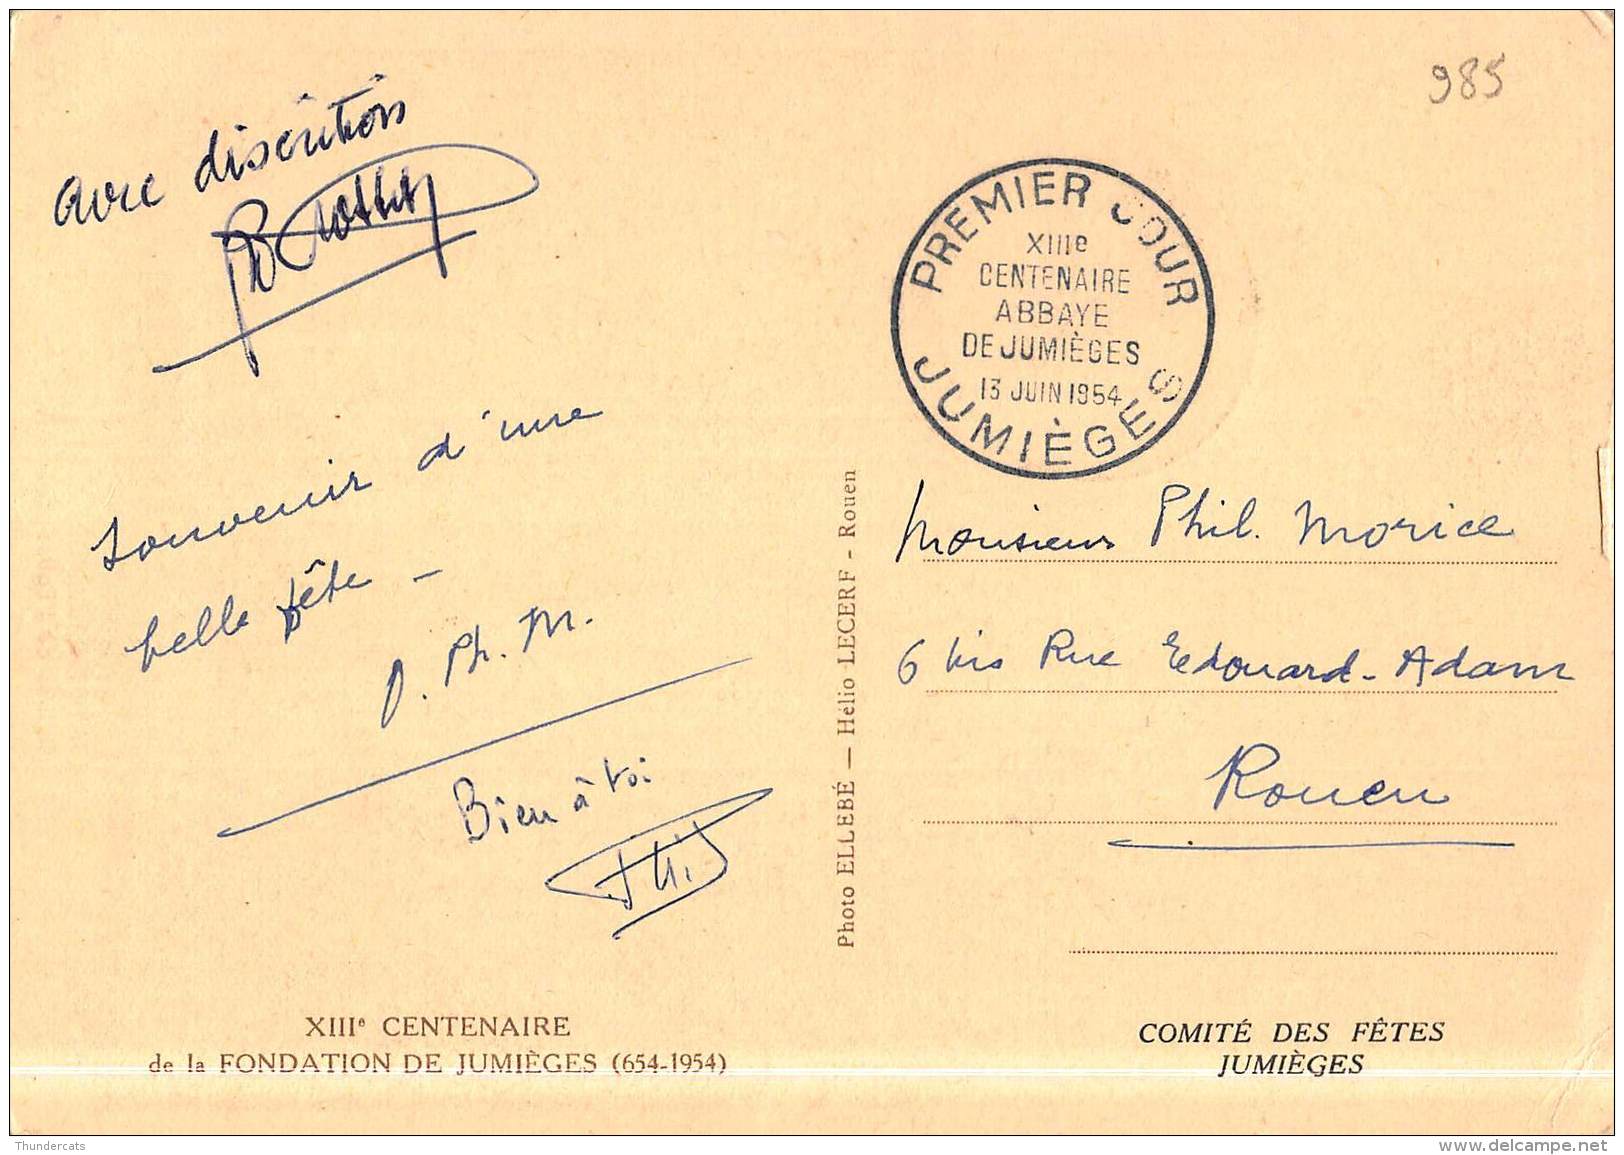 985
avec discrétion
Souvenir d'une
belle fête -
Ph. M.
Bien à toi
PREMIER JOUR
XIIIe
CENTENAIRE
ABBAYE
DE JUMIÈGES
13 JUIN 1954
JUMIÈGES
Monsieur Phil. Morice
6 bis Rue Edouard-Adam
Rouen
Photo ELLEBÉ — Hélio LECERF - Rouen
XIIIe CENTENAIRE
de la FONDATION DE JUMIÈGES (654-1954)
COMITÉ DES FÊTES
JUMIÈGES
Thundercats
delcampe.net